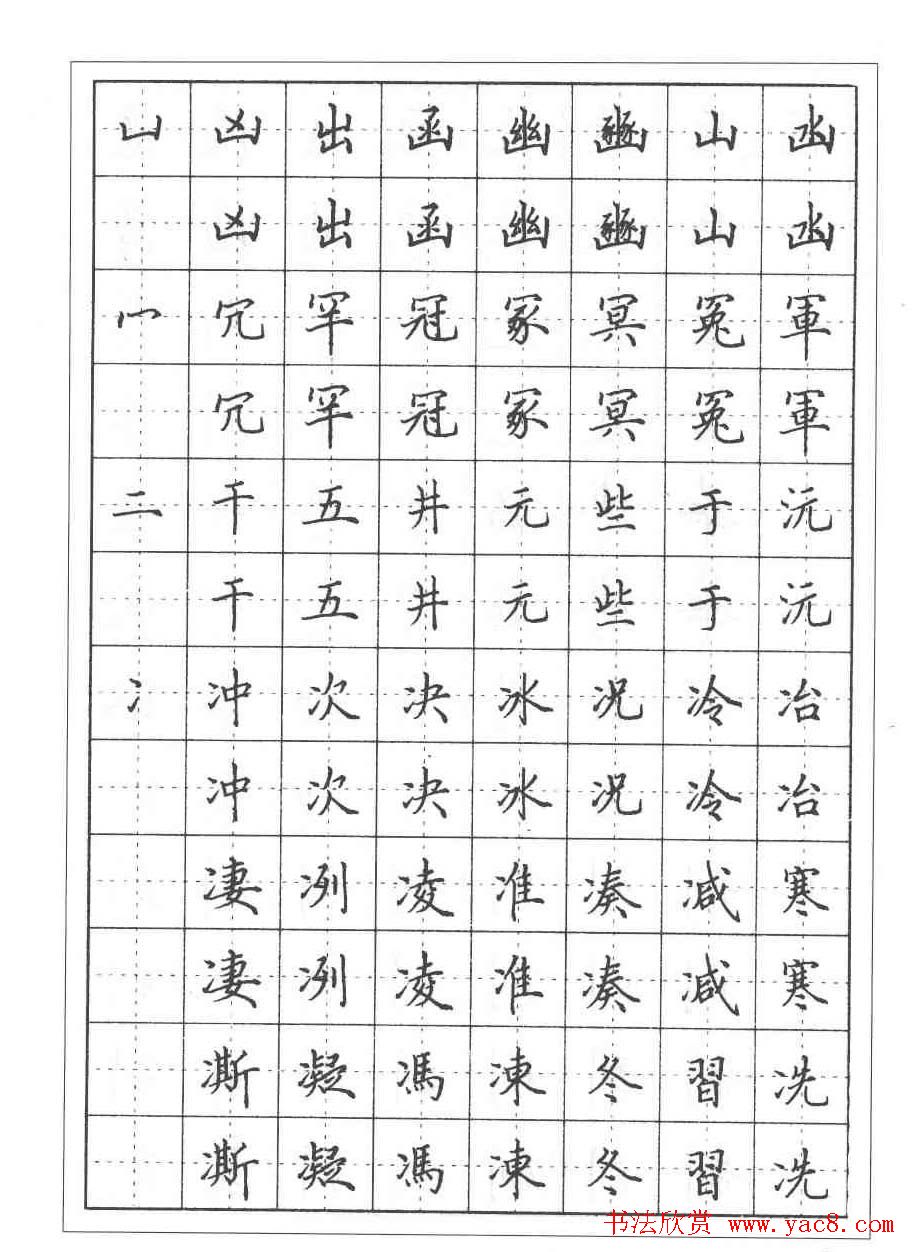 凵 凶 出 函 幽 豳 山 凼
凶 出 函 幽 豳 山 凼
冖 冗 罕 冠 冢 冥 冤 軍
冗 罕 冠 冢 冥 冤 軍
二 干 五 井 元 些 于 沅
干 五 井 元 些 于 沅
冫 冲 次 决 冰 况 冷 冶
冲 次 决 冰 况 冷 冶
凄 冽 凌 准 凑 减 寒
凄 冽 凌 准 凑 减 寒
凘 凝 馮 凍 冬 習 冼
凘 凝 馮 凍 冬 習 冼
书法欣赏 www.yac8.com